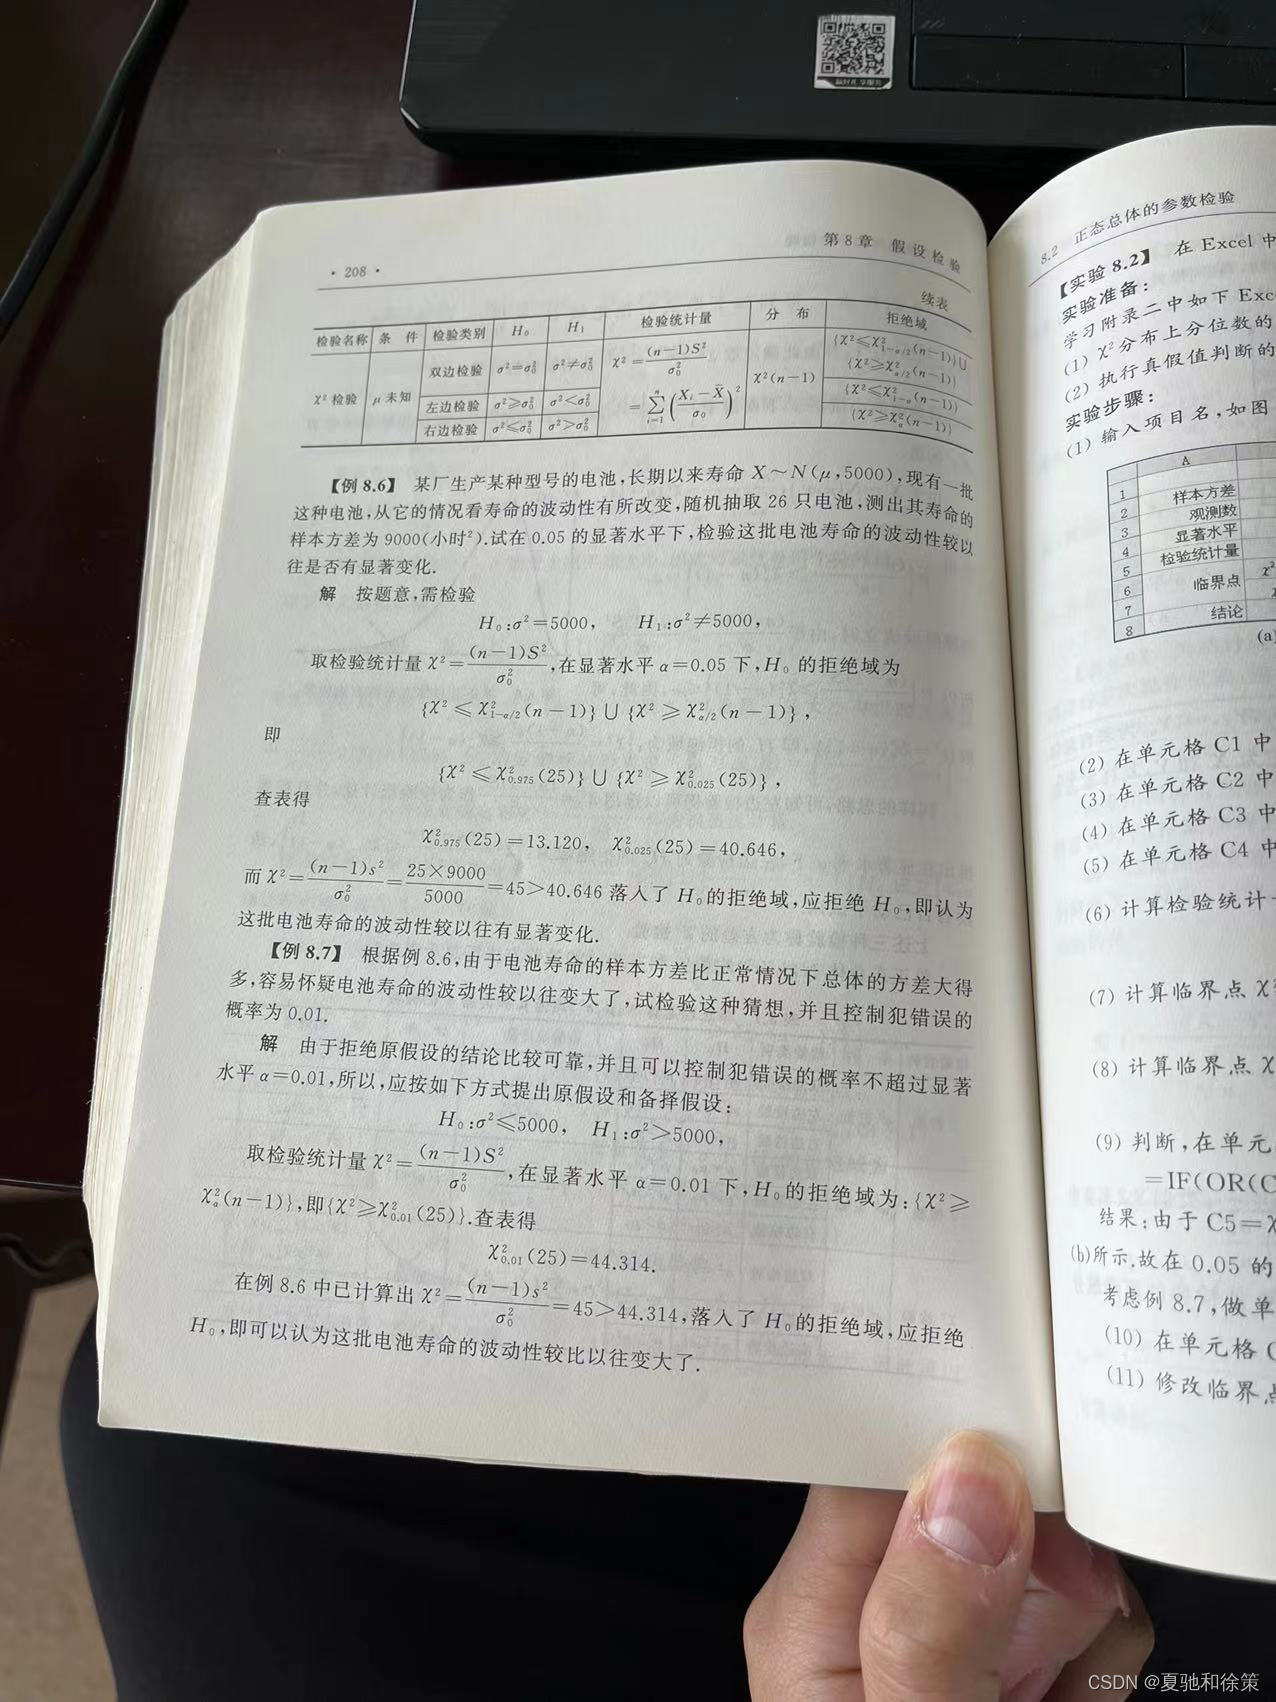 · 208 ·
第8章 假设检验
续表
检验名称 条 件 检验类别 H₀ H₁ 检验统计量 分 布 拒绝域
χ²检验 μ未知 双边检验 σ²=σ₀² σ²≠σ₀² χ²=(n-1)S²/σ₀² =∑ᵢ₌₁ⁿ((Xᵢ-X̄)/σ₀)² χ²(n-1) {χ²≤χ²₁₋α/₂(n-1)}∪{χ²≥χ²α/₂(n-1)}
左边检验 σ²≥σ₀² σ²<σ₀² {χ²≤χ²₁₋α(n-1)}
右边检验 σ²≤σ₀² σ²>σ₀² {χ²≥χ²α(n-1)}
【例 8.6】 某厂生产某种型号的电池,长期以来寿命 X~N(μ,5000),现有一批
这种电池,从它的情况看寿命的波动性有所改变,随机抽取 26 只电池,测出其寿命的
样本方差为 9000(小时²).试在 0.05 的显著水平下,检验这批电池寿命的波动性较以
往是否有显著变化.
解 按题意,需检验
H₀:σ²=5000, H₁:σ²≠5000,
取检验统计量 χ²=(n-1)S²/σ₀²,在显著水平 α=0.05 下,H₀ 的拒绝域为
{χ²≤χ²₁₋α/₂(n-1)}∪{χ²≥χ²α/₂(n-1)},
即
{χ²≤χ²₀.₉₇₅(25)}∪{χ²≥χ²₀.₀₂₅(25)},
查表得
χ²₀.₉₇₅(25)=13.120, χ²₀.₀₂₅(25)=40.646,
而 χ²=(n-1)s²/σ₀²=25×9000/5000=45>40.646 落入了 H₀的拒绝域,应拒绝 H₀,即认为
这批电池寿命的波动性较以往有显著变化.
【例 8.7】 根据例 8.6,由于电池寿命的样本方差比正常情况下总体的方差大得
多,容易怀疑电池寿命的波动性较以往变大了,试检验这种猜想,并且控制犯错误的
概率为 0.01.
解 由于拒绝原假设的结论比较可靠,并且可以控制犯错误的概率不超过显著
水平 α=0.01,所以,应按如下方式提出原假设和备择假设:
H₀:σ²≤5000, H₁:σ²>5000,
取检验统计量 χ²=(n-1)S²/σ₀²,在显著水平 α=0.01 下,H₀的拒绝域为:{χ²≥
χ²α(n-1)},即{χ²≥χ²₀.₀₁(25)}.查表得
χ²₀.₀₁(25)=44.314.
在例 8.6 中已计算出 χ²=(n-1)s²/σ₀²=45>44.314,落入了 H₀的拒绝域,应拒绝
H₀,即可以认为这批电池寿命的波动性较比以往变大了.
8.2 正态总体的参数检验
【实验 8.2】 在 Excel 中
实验准备:
学习附录二中如下 Exc
(1) χ²分布上分位数的
(2) 执行真假值判断的
实验步骤:
(1) 输入项目名,如图
A
1
2 样本方差
3 观测数
4 显著水平
5 检验统计量
6 临界点
7
8 结论
(a)
(2) 在单元格 C1 中
(3) 在单元格 C2 中
(4) 在单元格 C3 中
(5) 在单元格 C4 中
(6) 计算检验统计
(7) 计算临界点 χ
(8) 计算临界点 χ
(9) 判断,在单元
=IF(OR(C
结果:由于 C5=
(b)所示.故在 0.05 的
考虑例 8.7,做单
(10) 在单元格
(11) 修改临界
CSDN @夏驰和徐策